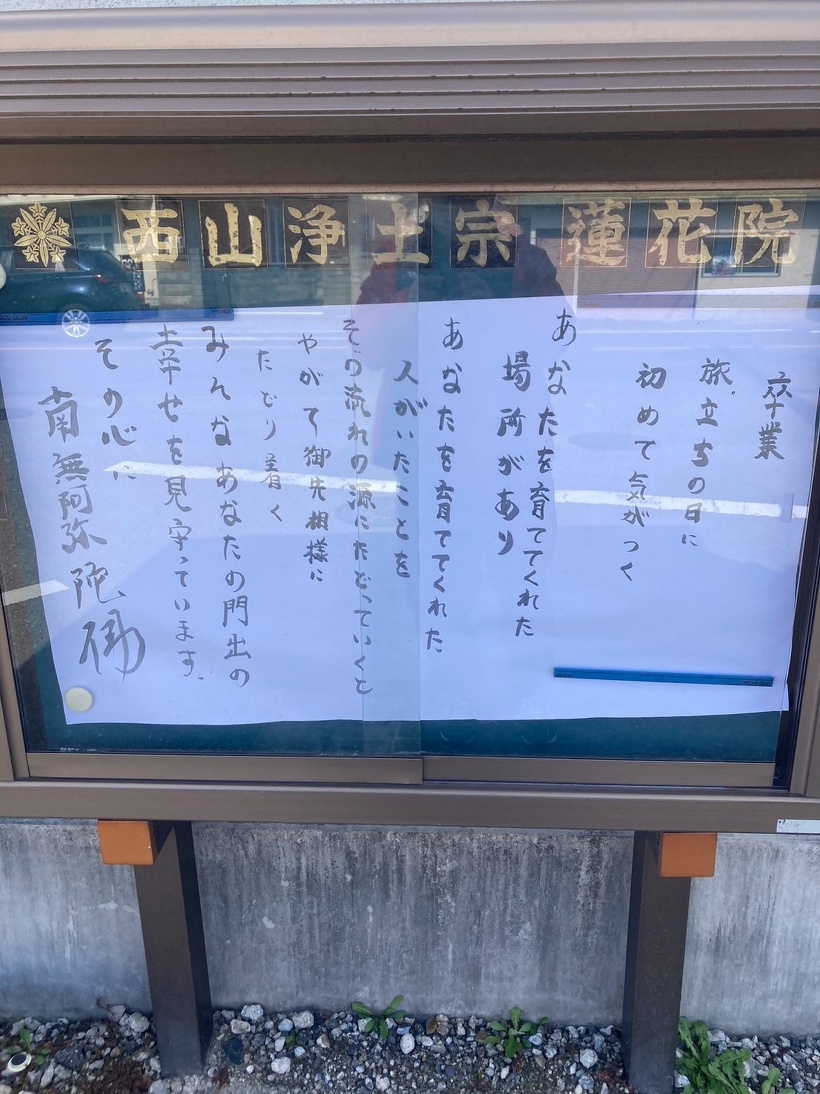 西山浄土宗 蓮花院
卒業
旅立ちの日に
初めて気がつく
あなたを育ててくれた
場所があり
あなたを育ててくれた
人がいたことを
その流れの源にたどっていくと
やがて御先祖様に
たどり着く
みんなあなたの門出の
幸せを見守っています。
その心に
南無阿弥陀佛